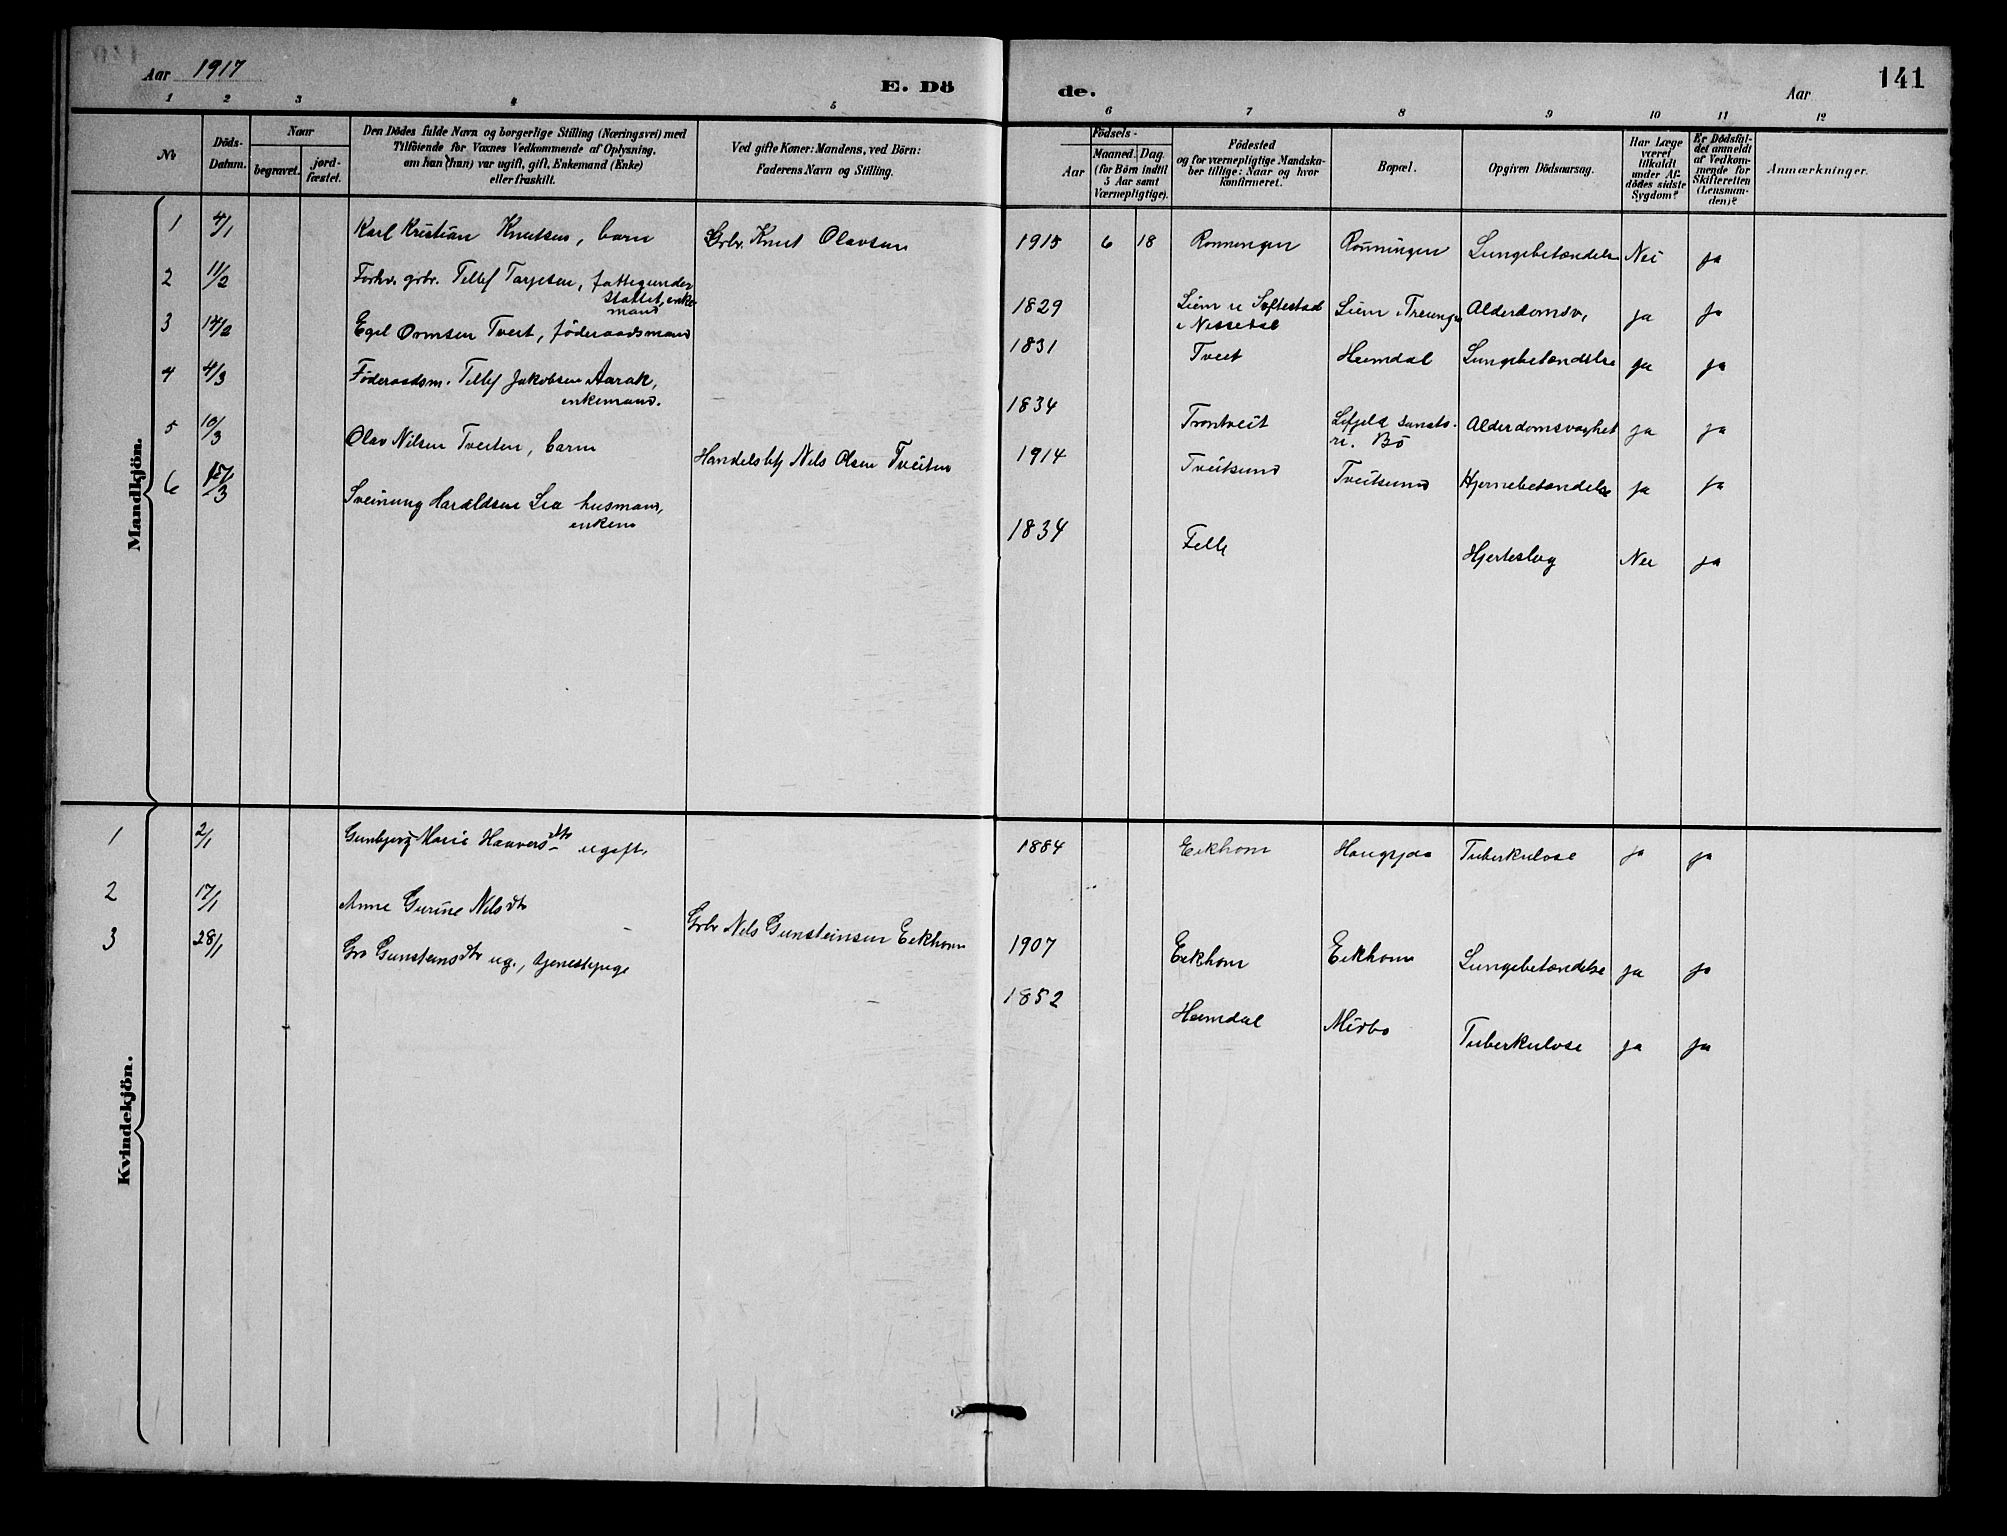 Aar 1917
E. Dö
de.
Aar
141
1 2 3 4 5 6 7 8 9 10 11 12
No
Döds-
Datum.
Naar
begravet.
jord-
fæstet.
Den Dödes fulde Navn og borgerlige Stilling (Næringsvei) med
Tilföiende for Voxnes Vedkommende af Oplysning,
om han (hun) var ugift, gift, Enkemand (Enke)
eller fraskilt.
Ved gifte Koner: Mandens, ved Börn:
Faderens Navn og Stilling.
Födsels-
Aar
Maaned.
Dag.
(for Börn indtil
5 Aar samt
Værnepligtige).
Födested
og for værnepligtige Mandska-
ber tillige: Naar og hvor
konfirmeret.
Bopæl.
Opgiven Dödsaarsag.
Har Læge
været
tilkaldt
under Af-
dödes sidste
Sygdom?
Er Dödsfal-
det anmeldt
af Vedkom-
mende for
Skifteretten
(Lensman-
den)?
Anmærkninger.
Mandkjön.
1 4/1 Karl Kristian Knutsen, barn Grbr. Knut Olavsen 1915 6 18 Rønningen Rønningen Lungebetændelse Nei ja
2 11/2 Forhv. grbr. Tellef Tarjesen, fattigunder
støttet, enke
mand 1829 Liem u Syftestad
i Nissedal Liem i Treungen Alderdomsv. ja ja
3 14/2 Egil Ormsen Tveit, føderaadsmand 1831 Tveit Heimdal Lungebetændelse ja ja
4 4/3 Føderaadsm. Tellef Jakobsen Aarak,
enkemand. 1834 Trontveit Lifjeld sanato-
ri. Bö Alderdomsvaghet ja ja
5 10/3 Olav Nilsen Tveiten, barn Handelsbtj Nils Olsen Tveiten 1914 Tveitsund Tveitsund Hjernebetændelse ja ja
6 15/3 Sveinung Haraldsen Lia husmand,
enkem 1834 Felle Hjerteslag Nei ja
Kvindekjön.
1 2/1 Gunbjørg Marie Haavorsdtr ugift. 1884 Eikhom Haugsjaa Tuberkulose ja ja
2 17/1 Anne Gurine Nilsdtr Grbr Nils Gunsteinsen Eikhom 1907 Eikhom Eikhom Lungebetændelse ja ja
3 28/1 Gro Gunsteinsdtr ug., tjenestepige 1852 Heimdal Midbø Tuberkulose ja ja